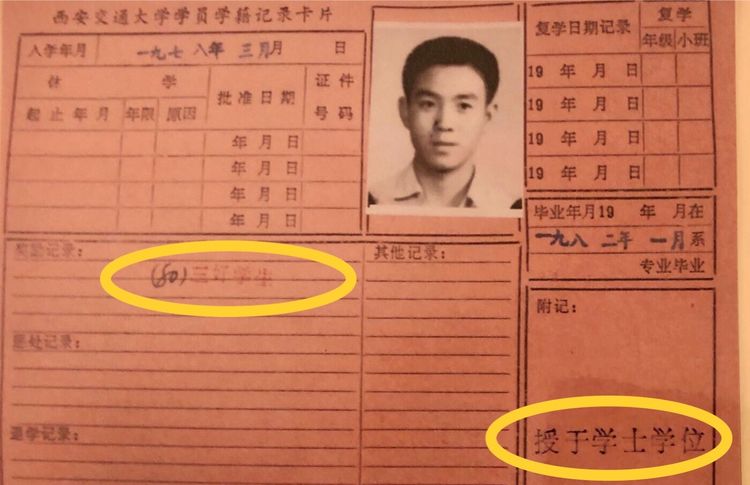 西安交通大学学员学籍记录卡片
入学年月 一九七八年 三月月 日
休 学
起止年月 年限 原因 批准日期 证件号码
年 月 日
年 月 日
年 月 日
年 月 日
复学日期记录 复学
年级 小班
19 年 月 日
19 年 月 日
19 年 月 日
19 年 月 日
毕业年月19 年 月在
一九八二年一月系
专业毕业
奖励记录:
(80)三好学生
其他记录:
附记:
惩处记录:
退学记录:
授于学士学位